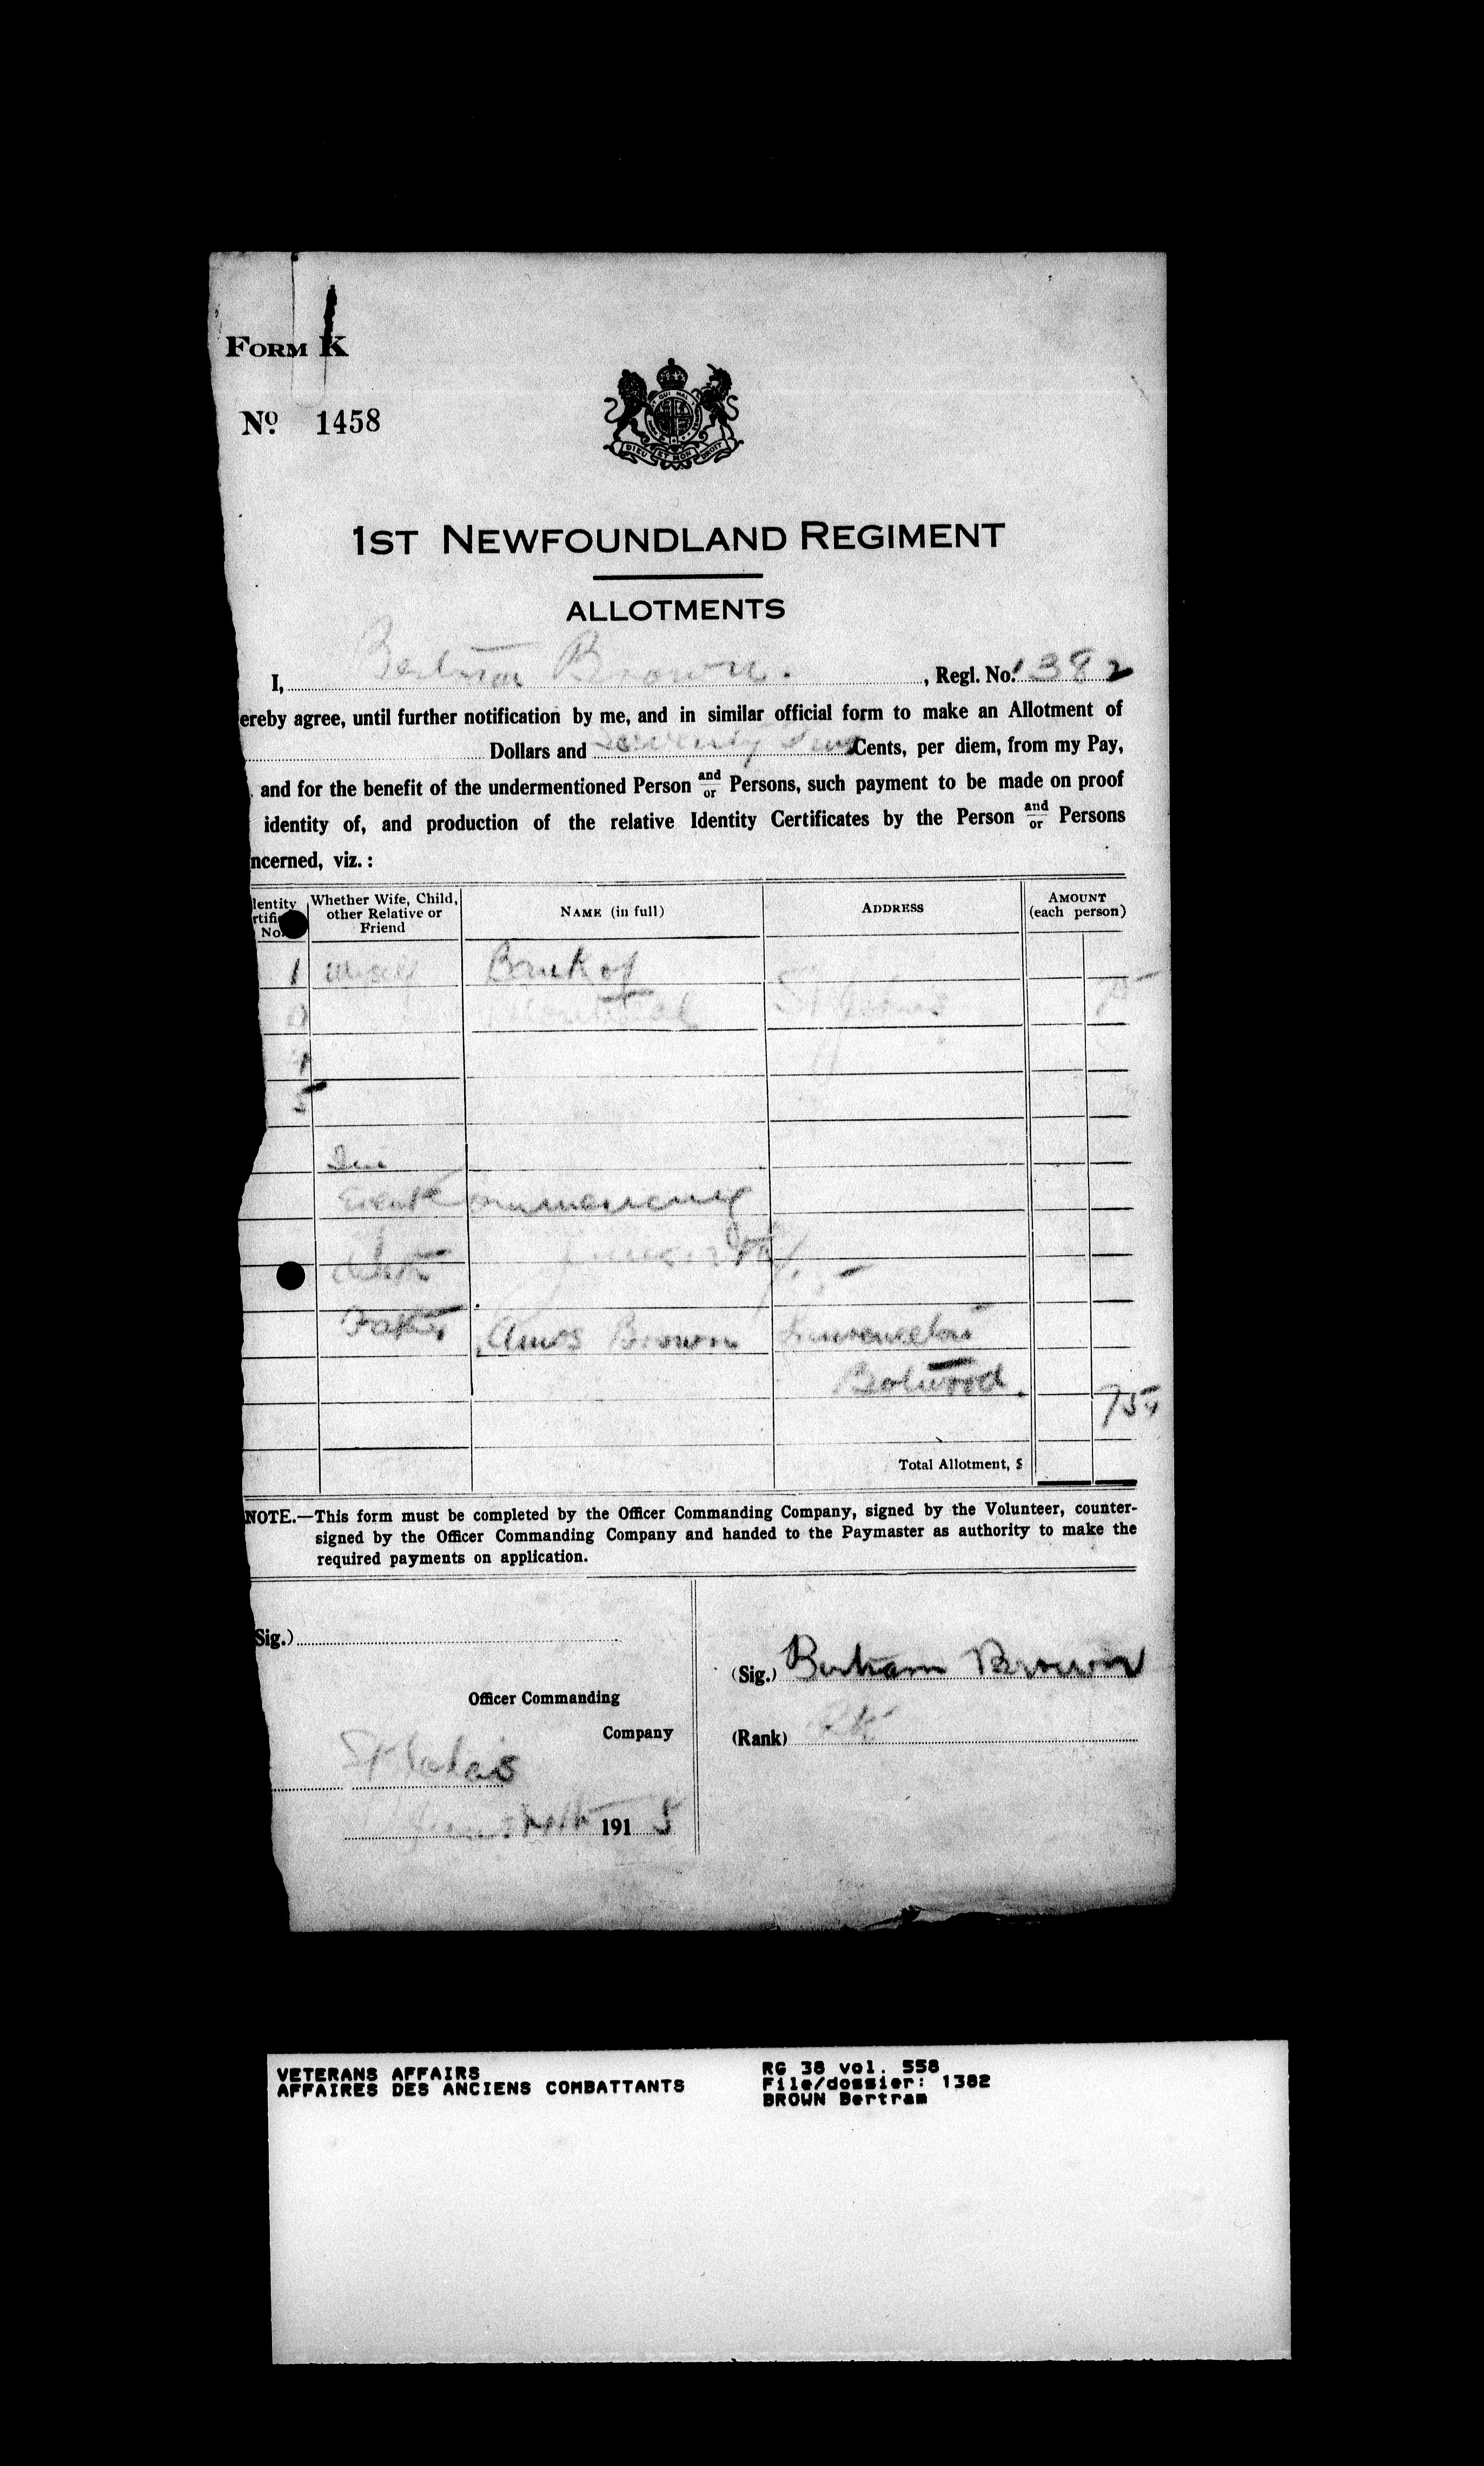 FORM K
No. 1458
DIEU ET MON DROIT
1ST NEWFOUNDLAND REGIMENT
ALLOTMENTS
I, Bertram Brown. , Regl. No. 1382
ereby agree, until further notification by me, and in similar official form to make an Allotment of
Dollars and Seventy Five Cents, per diem, from my Pay,
and for the benefit of the undermentioned Person and/or Persons, such payment to be made on proof
identity of, and production of the relative Identity Certificates by the Person and/or Persons
ncerned, viz. :
dentity rtific No. Whether Wife, Child, other Relative or Friend NAME (in full) ADDRESS AMOUNT (each person)
1 Myself Bank of
Montreal St John's 75
5
In
Event Commencing
death
Father Amos Brown Lawrenceton
Botwood. 75
Total Allotment, $
NOTE.—This form must be completed by the Officer Commanding Company, signed by the Volunteer, counter-
signed by the Officer Commanding Company and handed to the Paymaster as authority to make the
required payments on application.
Sig.)
(Sig.) Bertram Brown
Officer Commanding
Company
(Rank) Pte
St John's
June 191 5
VETERANS AFFAIRS
AFFAIRES DES ANCIENS COMBATTANTS
RG 38 vol. 558
File/dossier: 1382
BROWN Bertram